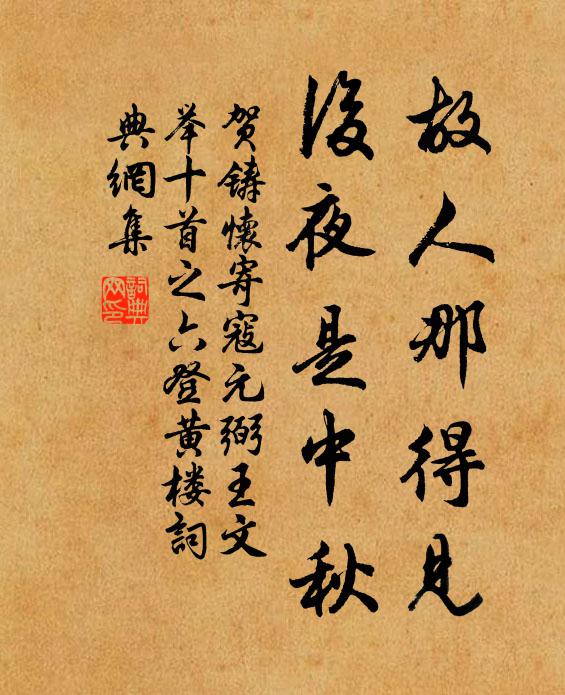 故人那得見
後夜是中秋
贺鑄懷寄寇元弼王文
举十首之六登黄楼詞
典網集
詞典網印